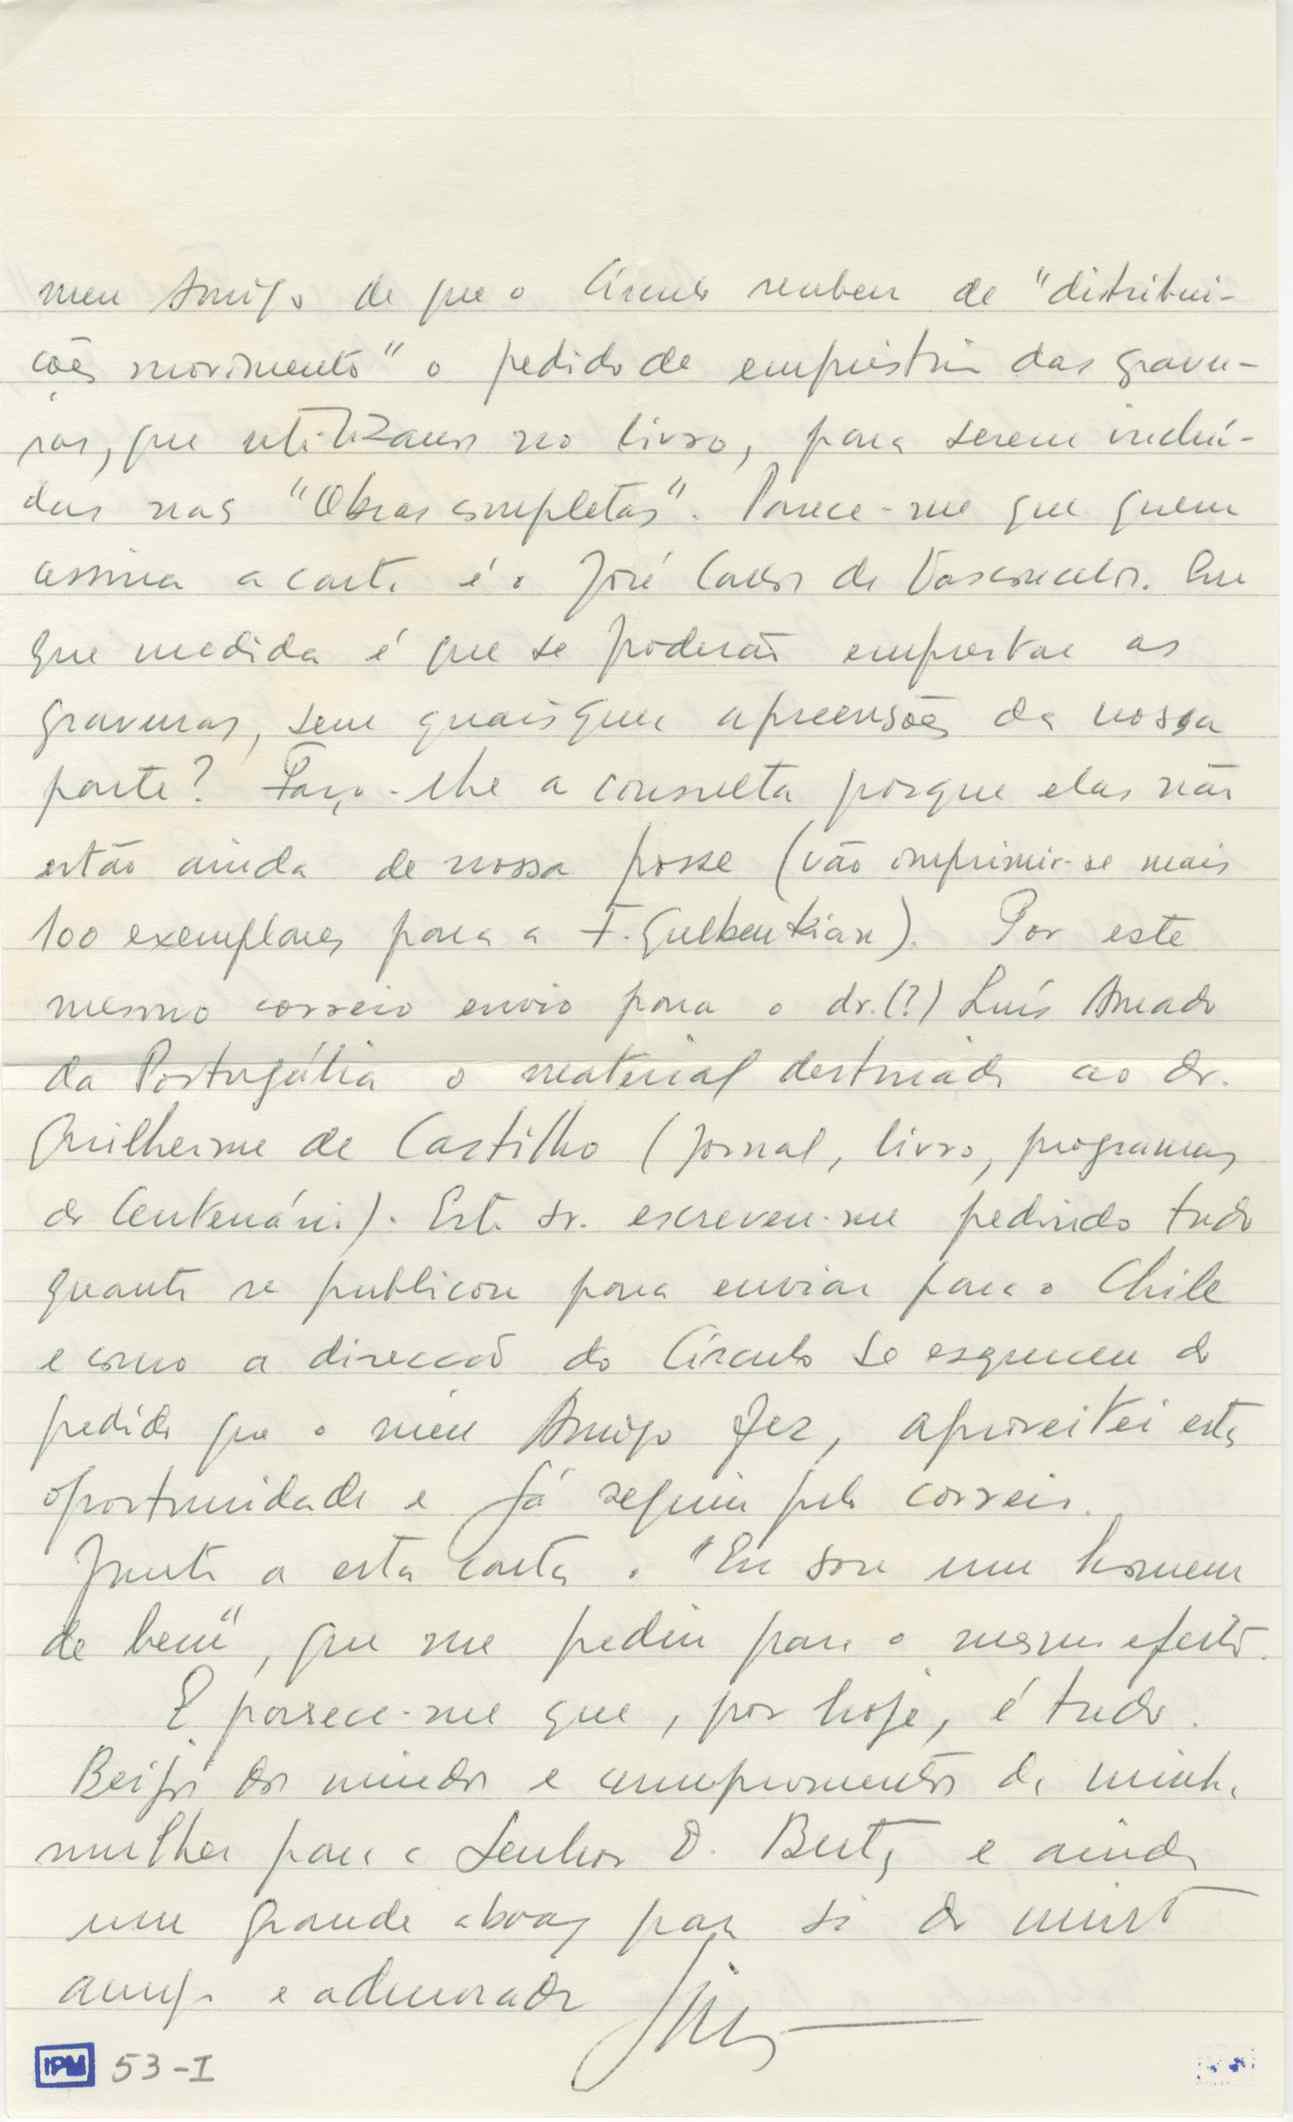 meu Amigo de que o Círculo recebeu de "distribui-
ções movimento" o pedido de empréstimo das gravu-
ras, que utilizamos no livro, para serem incluí-
das nas "Obras completas". Parece-me que quem
assina a carta é o José Carlos de Vasconcelos. Em
que medida é que se poderão emprestar as
gravuras, sem quaisquer apreensões da nossa
parte? Faço-lhe a consulta porque elas não
estão ainda de nossa posse (vão imprimir-se mais
100 exemplares para a F. Gulbenkian). Por este
mesmo correio envio para o dr.(?) Luís Amado
da Portugália o material destinado ao dr.
Guilherme de Castilho (Jornal, livro, programas
do Centenário). Este sr. escreveu-me pedindo tudo
quanto se publicou para enviar para o Chile
e como a direcção do Círculo se esqueceu do
pedido que o meu Amigo fez, aproveitei esta
oportunidade e já seguiu pelo correio.
Junto a esta carta o "Eu sou um homem
de bem", que me pediu para o mesmo efeito.
E parece-me que, por hoje, é tudo.
Beijos dos miudos e cumprimentos de minha
mulher para a Senhora D. Berta e ainda
um grande abraço para si do muito
amigo e admirador
IPM 53-I